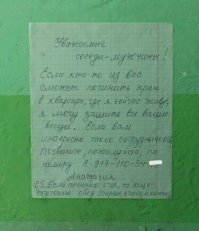 Уважаемые
соседи-мужчины!
Если кто-то из вас
сможет починить кран
в квартире, где я сейчас живу,
я могу зашить все ваши
вещи. Если вам
интересно такое сотрудничество,
позвоните, пожалуйста, по
номеру 8-917-110-54
Анастасия
P.S. Если починить стол, то еще
обед (первое, второе и компот)